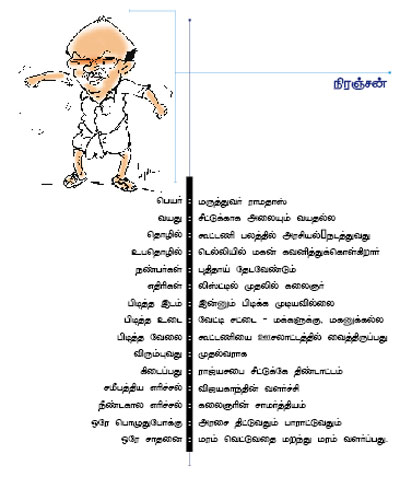 நிரஞ்சன்
பெயர் : மருத்துவர் ராமதாஸ்
வயது : சீட்டுக்காக அலையும் வயதல்ல
தொழில் : கூட்டணி பலத்தில் அரசியல் நடத்துவது
உபதொழில் : டெல்லியில் மகன் கவனித்துக்கொள்கிறார்
நண்பர்கள் : புதிதாய் தேடவேண்டும்
எதிரிகள் : லிஸ்ட்டில் முதலில் கலைஞர்
பிடித்த இடம் : இன்னும் பிடிக்க முடியவில்லை
பிடித்த உடை : வேட்டி சட்டை - மக்களுக்கு, மகனுக்கல்ல
பிடித்த வேலை : கூட்டணியை ஊசலாட்டத்தில் வைத்திருப்பது
விரும்புவது : முதல்வராக
கிடைப்பது : ராஜ்யசபை சீட்டுக்கே திண்டாட்டம்
சமீபத்திய எரிச்சல் : விஜயகாந்தின் வளர்ச்சி
நீண்டகால எரிச்சல் : கலைஞரின் சாமர்த்தியம்
ஒரே பொழுதுபோக்கு : அரசை திட்டுவதும் பாராட்டுவதும்
ஒரே சாதனை : மரம் வெட்டுவதை மறந்து மரம் வளர்ப்பது.